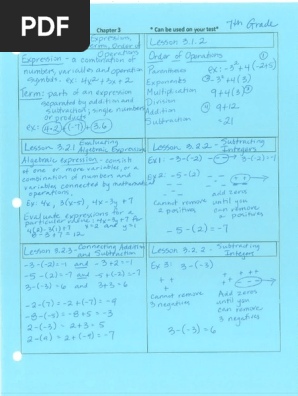 PDF
Chapter 3
* Can be used on your test*
7th Grade
Expression,
Term, Order of
Operations
Expression - a combination of
numbers, variables and operation
symbols. ex: 4x² + 3x + 2
Term: parts of an expression
separated by addition and
subtraction; single numbers
or products
Lesson 3.1.2
Order of Operations
Parentheses
Exponents
Multiplication
Division
Addition
Subtraction
9+4(3)
9+12
=21
Lesson 3.2.1 Evaluating
Algebraic Expressions
Algebraic expression - consist
of one or more variables, or a
combination of numbers and
variables connected by mathematical
operations.
Ex: 4x, 3(x-5), 4x-3y+7
Evaluate expressions for a
particular value: 4x-3y+7 for
8-3+7=12
Lesson 3.2.2 - Subtracting
Integers
Ex 1: -3-(-2)
Ex 2: -5-(2)
Cannot remove
2 positives
Add zeros
until you
can remove
+ positives
-5-(2) = -7
Lesson 3.2.3 - Connecting Addition
and Subtraction
-3-(-2)=-1 and -3+2=-1
-5-(2)=-7 and -5+(-2)=-7
3-(-3)=6 and 3+3=6
-2-(7) = -2+(-7) = -9
-8-(-5) = -8+5 = -3
2-(-3) = 2+3 = 5
Lesson 3.2.2 - Subtracting
Integers
Ex 3: 3-(-3)
Cannot remove
3 negatives
Add zeros
until you
can remove
3 negatives
3-(-3) = 6